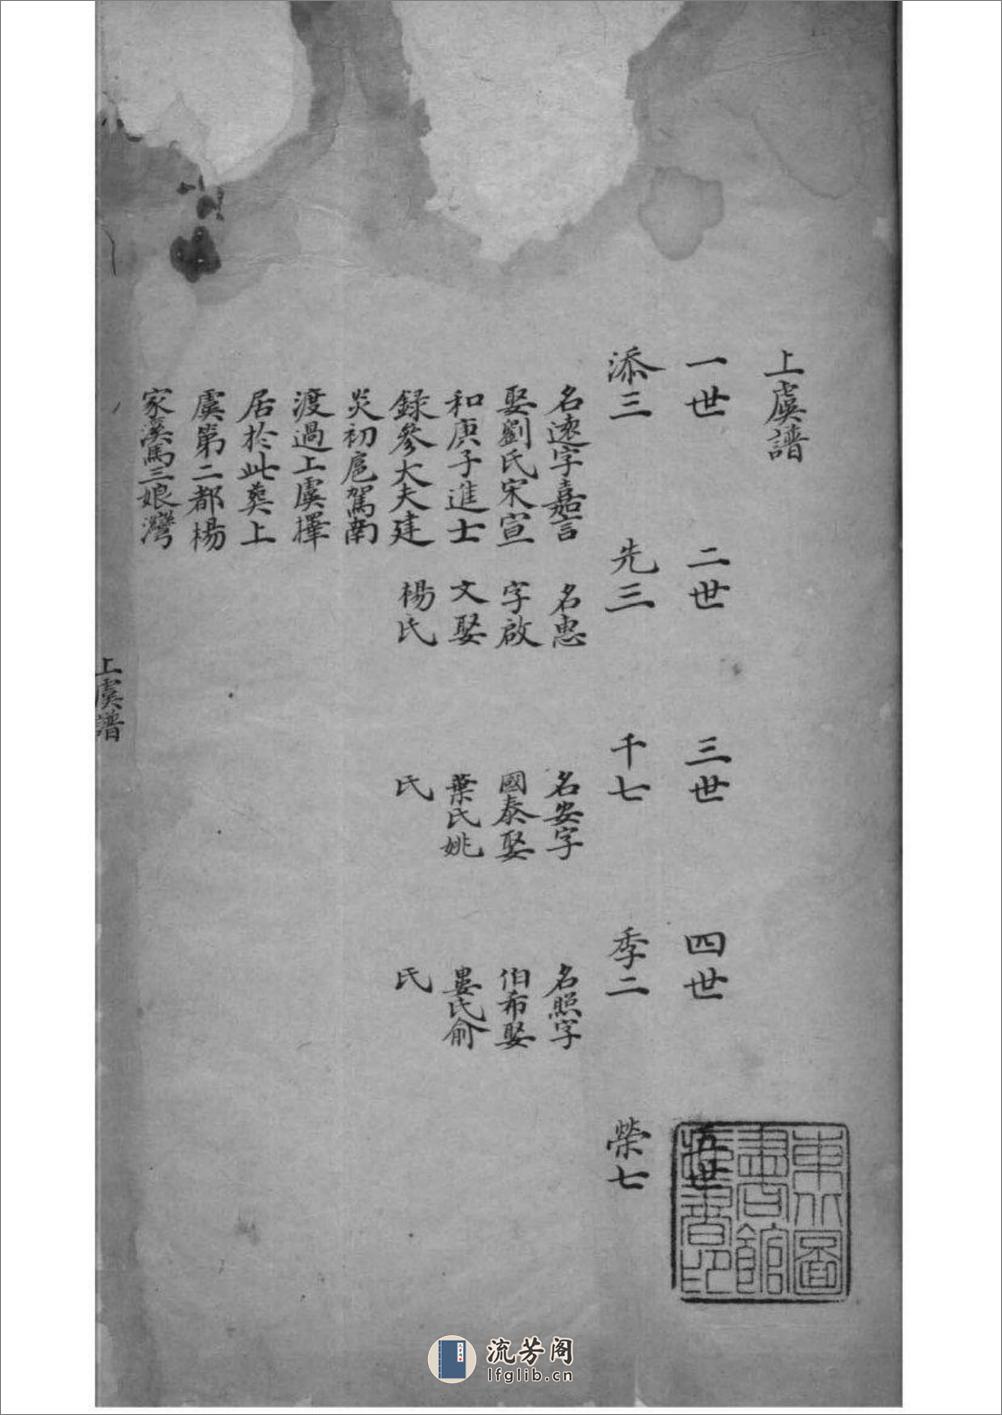 上虞譜
一世
二世
三世
四世
五世
添三
先三
千七
季二
榮七
名遠字嘉言
娶劉氏宋宣
和庚子進士
録參大夫建
炎初扈駕南
渡過上虞擇
居於此葬上
虞第二都楊
家溪馬三娘灣
名惠
字啟
文娶
楊氏
名安字
國泰娶
葉氏姚
氏
名照字
伯布娶
婁氏俞
氏
上虞譜
東方圖
書館
藏書印
流芳阁
lfglib.cn